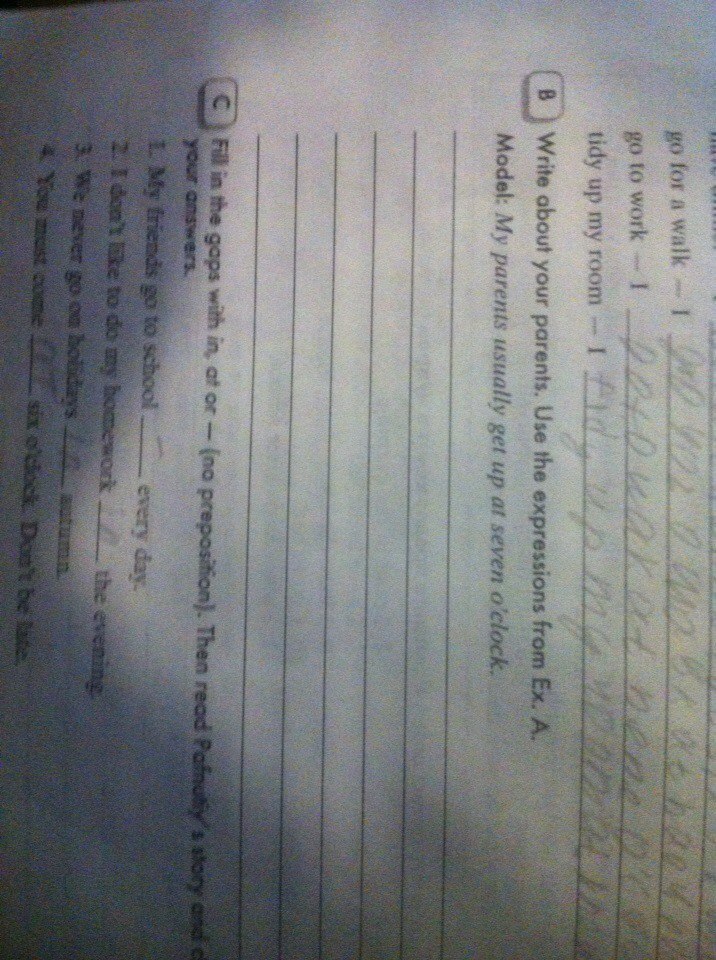 go for a walk – I go for a walk at
go to work – I go to work at nine
tidy up my room – I tidy up my room at
B Write about your parents. Use the expressions from Ex. A.
Model: My parents usually get up at seven o'clock.
C Fill in the gaps with in, at or – (no preposition). Then read Pafnuty's story and
your answers.
1. My friends go to school – every day.
2. I don't like to do my homework in the evening.
3. We never go on holidays in autumn.
4. You must come at six o'clock. Don't be late.